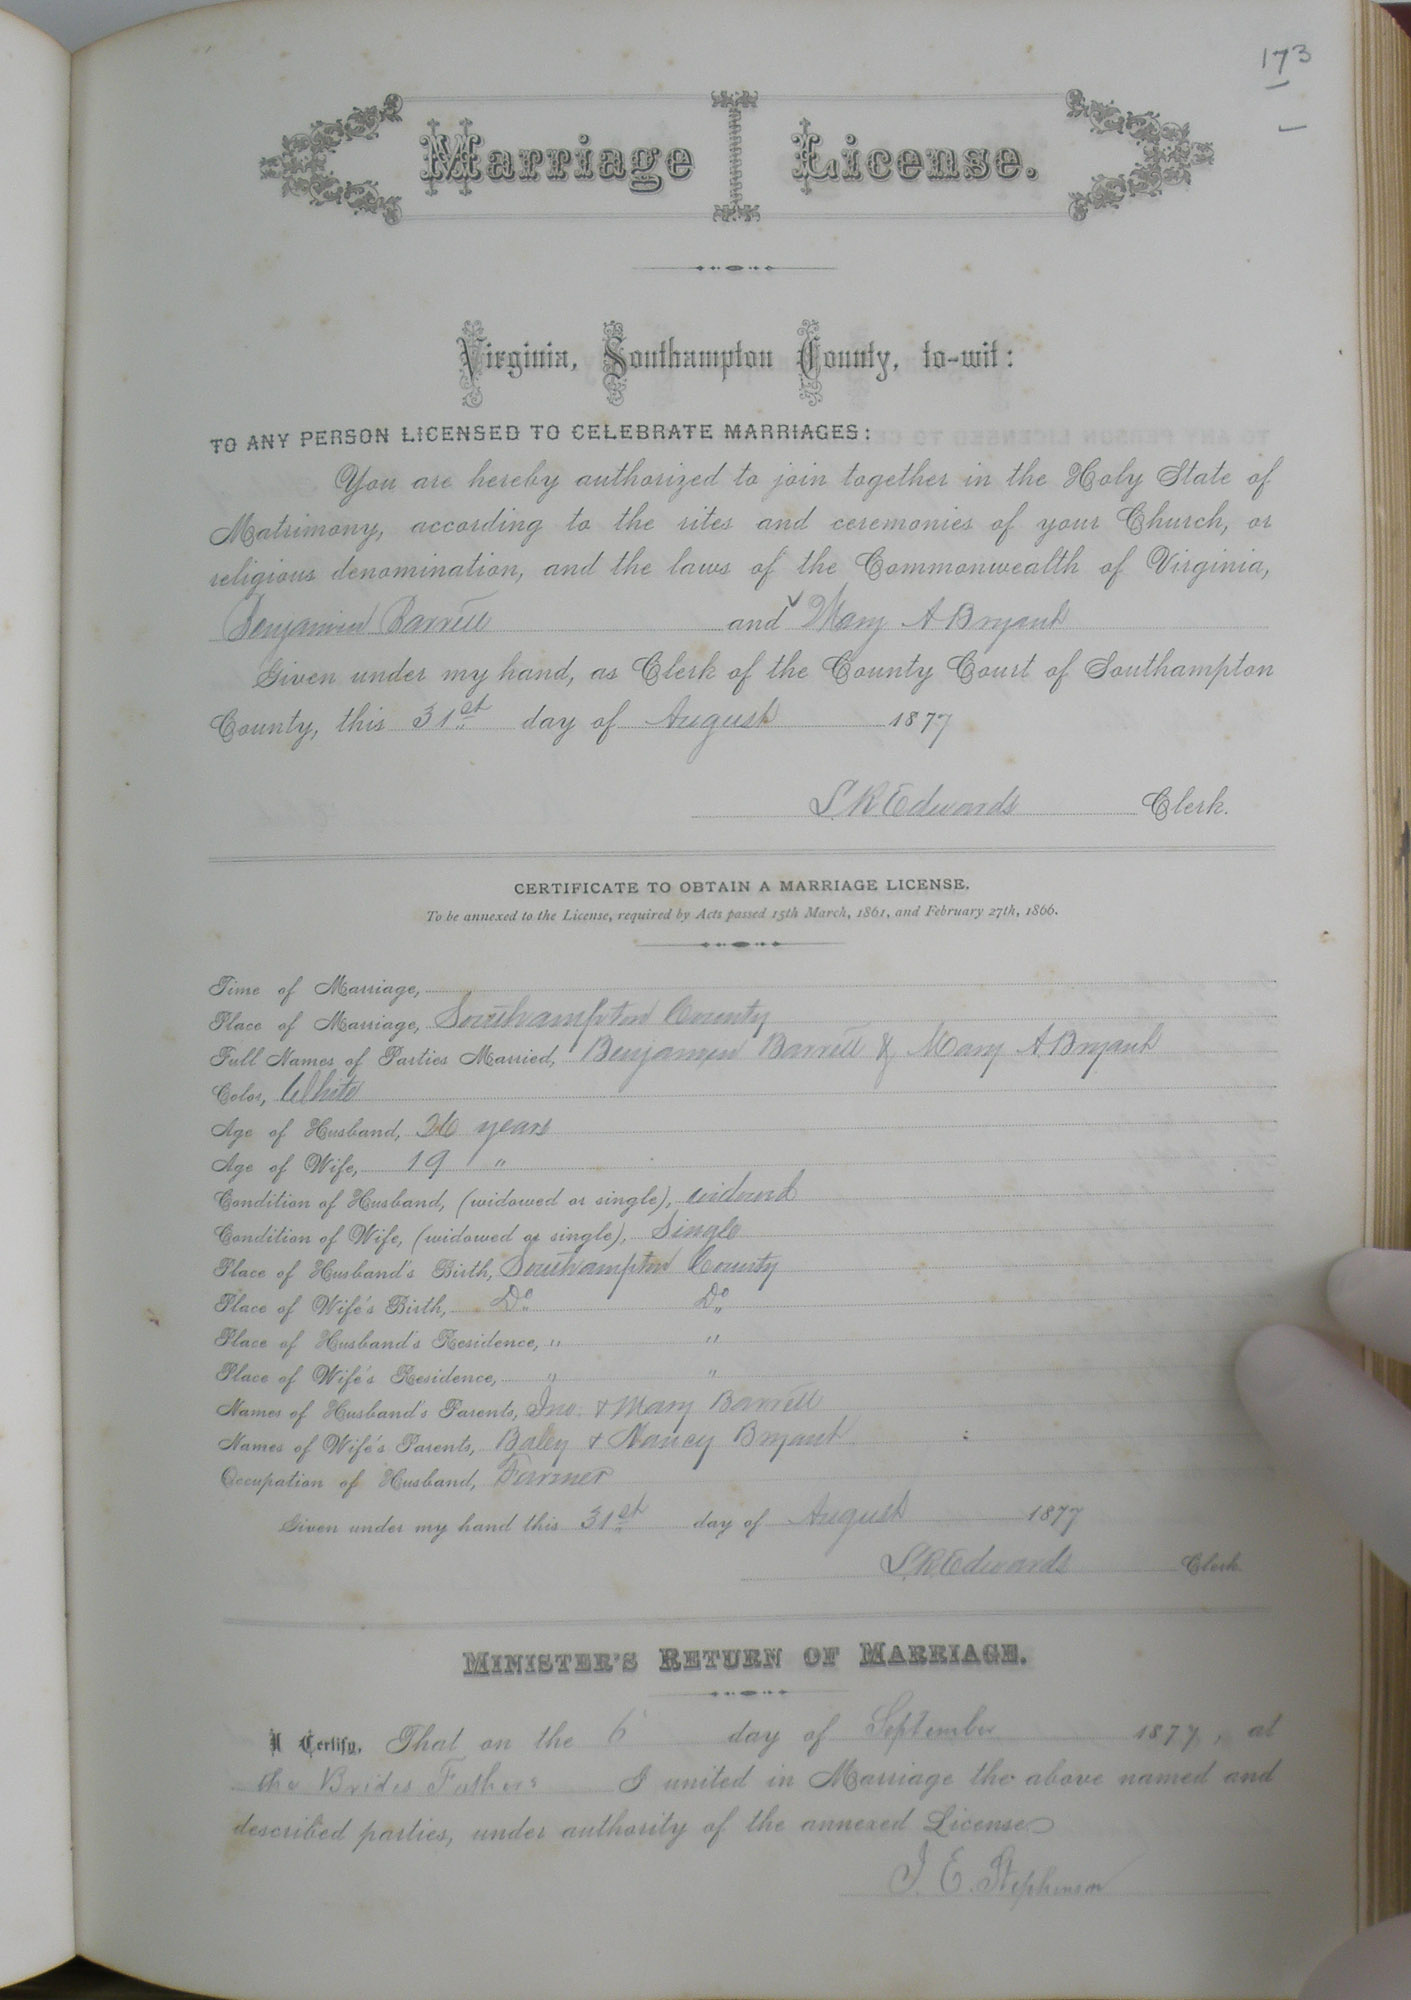 173
Marriage License.
Virginia, Southampton County, to-wit:
TO ANY PERSON LICENSED TO CELEBRATE MARRIAGES:
You are hereby authorized to join together in the Holy State of
Matrimony, according to the rites and ceremonies of your Church, or
religious denomination, and the laws of the Commonwealth of Virginia,
Benjamin Barrett and Mary A Bryant
Given under my hand, as Clerk of the County Court of Southampton
County, this 31st day of August 1877
L. R. Edwards Clerk.
CERTIFICATE TO OBTAIN A MARRIAGE LICENSE.
To be annexed to the License, required by Acts passed 15th March, 1861, and February 27th, 1866.
Time of Marriage,
Place of Marriage, Southampton County
Full Names of Parties Married, Benjamin Barrett & Mary A Bryant
Color, White
Age of Husband, 26 years
Age of Wife, 19 "
Condition of Husband, (widowed or single), widowed
Condition of Wife, (widowed or single), Single
Place of Husband's Birth, Southampton County
Place of Wife's Birth, Do Do
Place of Husband's Residence, " "
Place of Wife's Residence, " "
Names of Husband's Parents, Jno. & Mary Barrett
Names of Wife's Parents, Baley & Nancy Bryant
Occupation of Husband, Farmer
Given under my hand this 31st day of August 1877
L. R. Edwards Clerk.
MINISTER'S RETURN OF MARRIAGE.
I Certify, That on the 6 day of September 1877, at
the Brides Fathers I united in Marriage the above named and
described parties, under authority of the annexed License
J. E. Stephenson